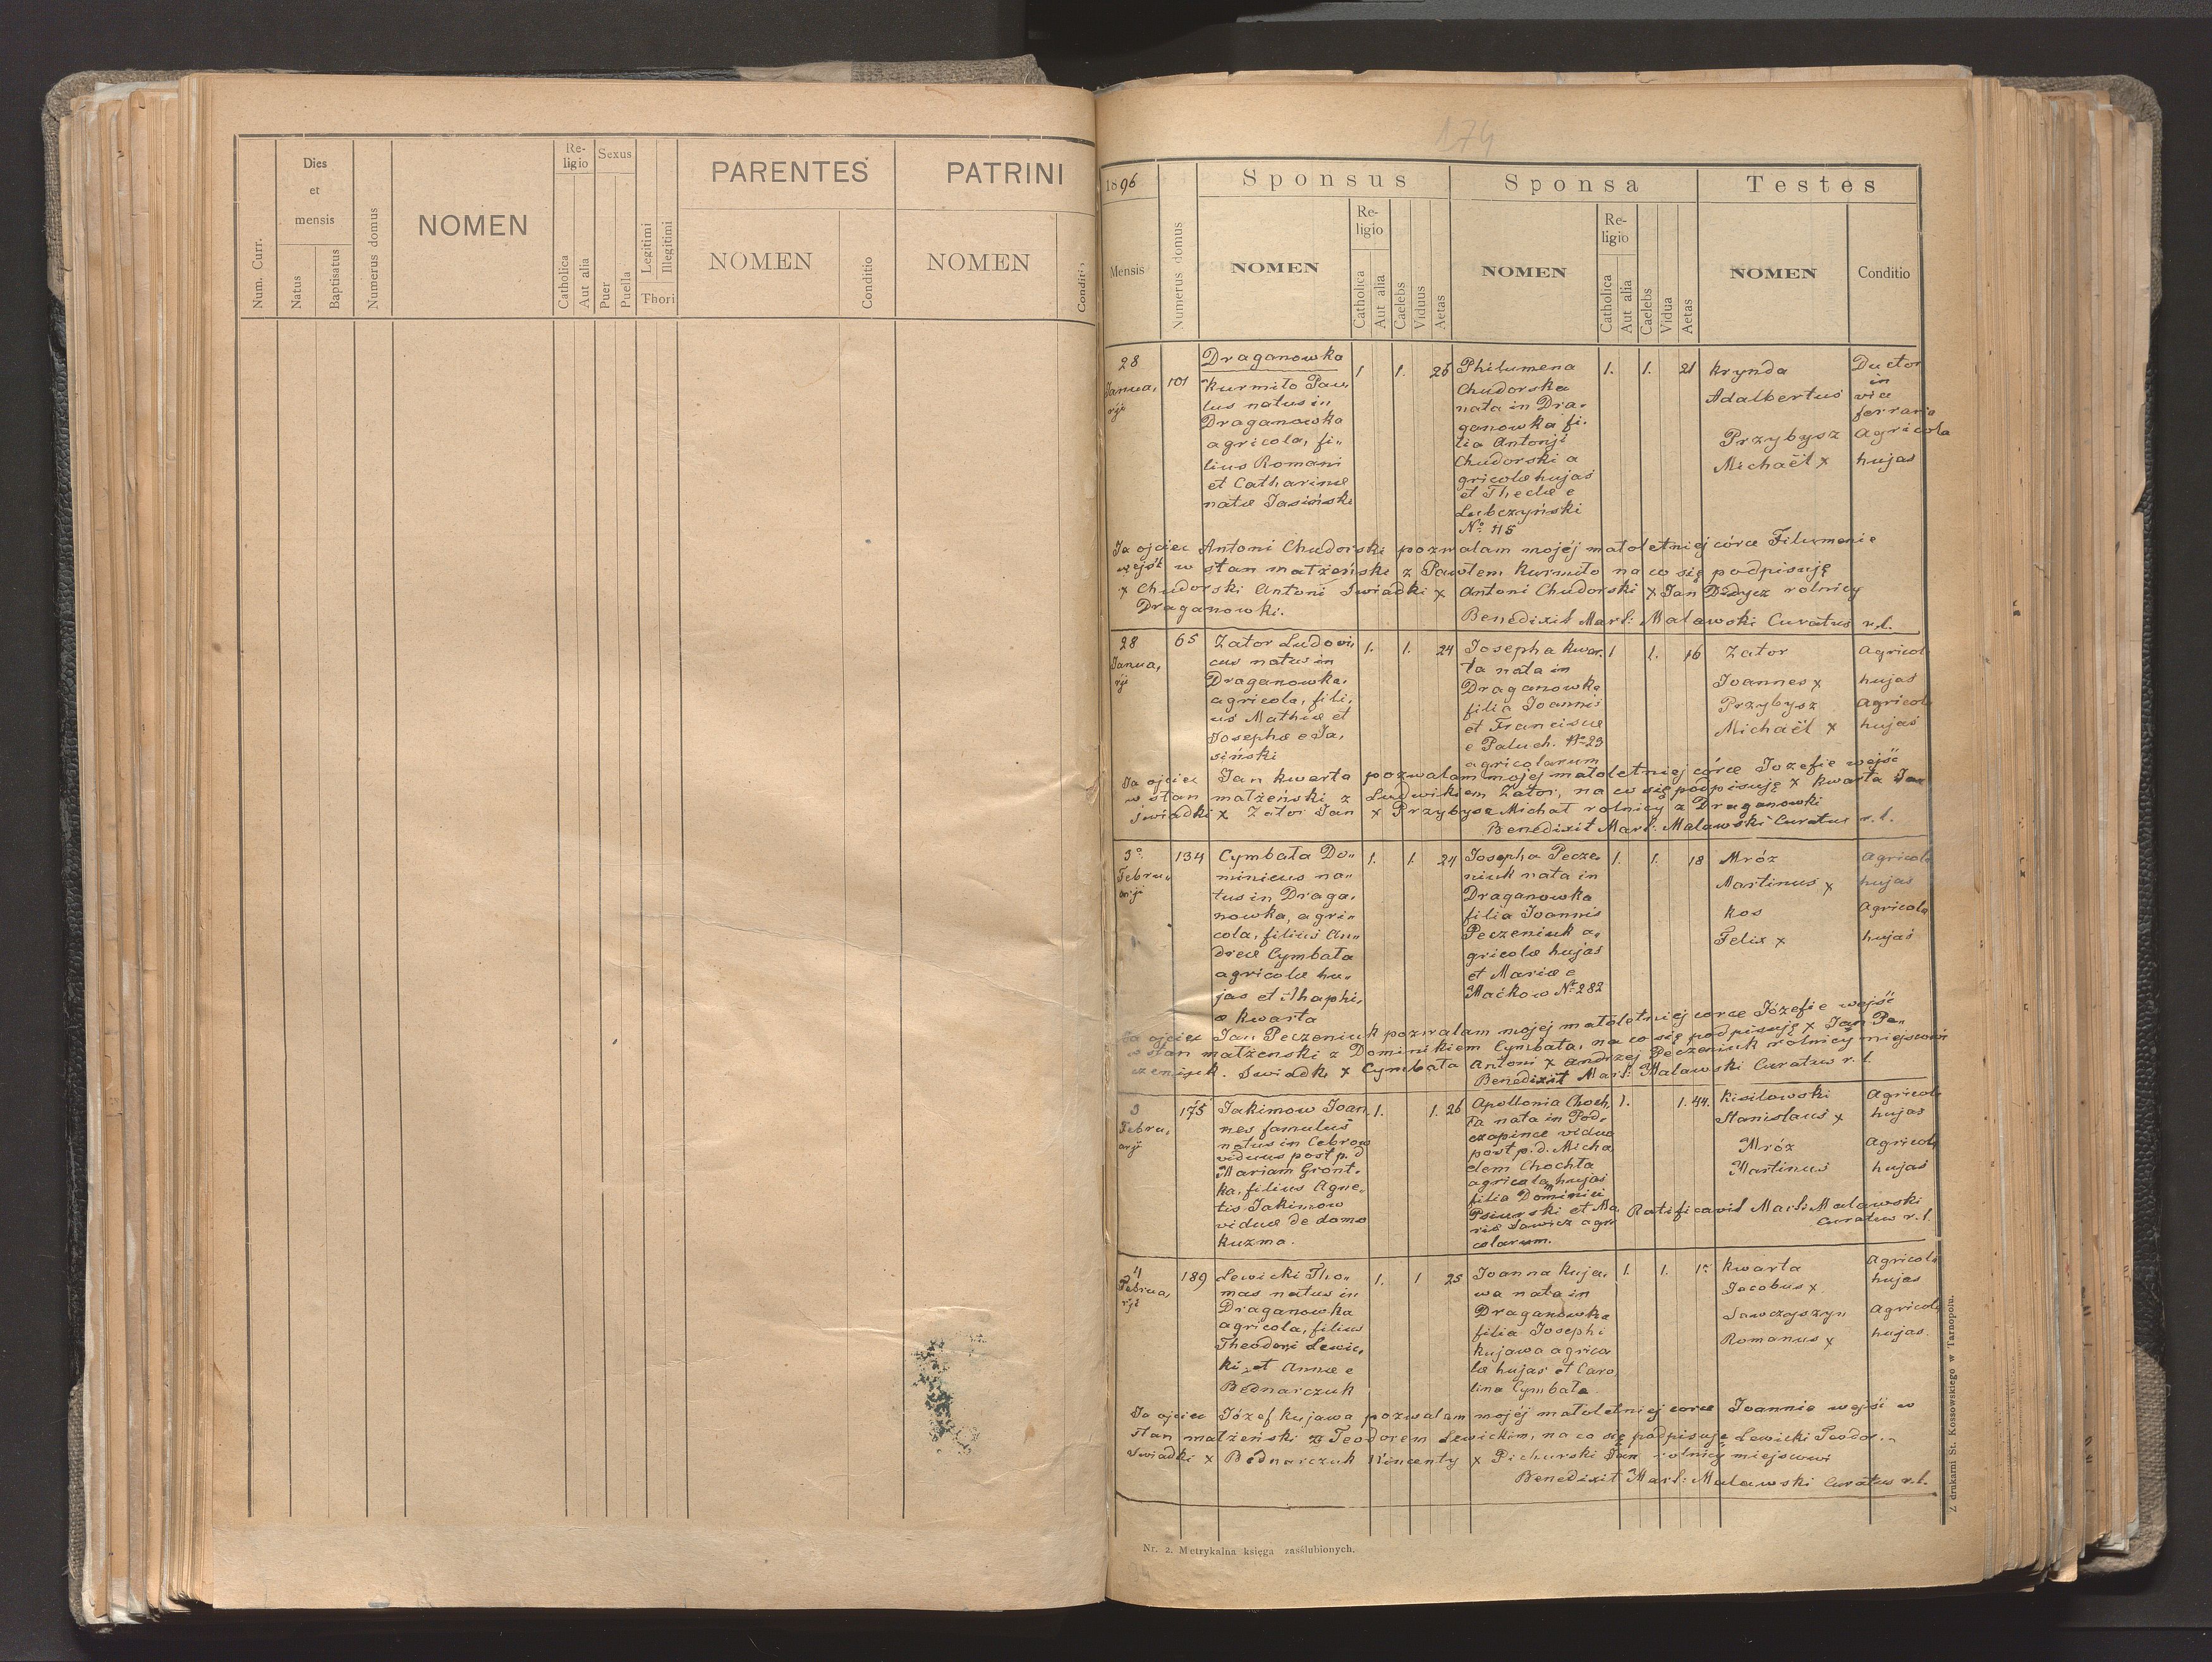 Num. Curr.
Dies
et
mensis
Natus
Baptisatus
Numerus domus
NOMEN
Re-
ligio
Catholica
Aut alia
Sexus
Puer
Puella
Legitimi
Illegitimi
Thori
PARENTES
NOMEN
Conditio
PATRINI
NOMEN
Conditio
174
1896
Mensis
Numerus domus
Sponsus
NOMEN
Re-
ligio
Catholica
Aut alia
Caelebs
Viduus
Aetas
Sponsa
NOMEN
Re-
ligio
Catholica
Aut alia
Caelebs
Vidua
Aetas
Testes
NOMEN
Conditio
28
Janua,
rji
101
Draganowka
Kurmiło Pau,
lus natus in
Draganowka
agricola, fi„
lius Romani
et Catharinæ
natæ Jasiński
1
1.
26
Philumena
Chudorska
nata in Dra„
ganowka fi„
lia Antonji
Chudorski a
gricolæ hujas
et Theclæ e
Lubczyński
No 115
1.
1.
21
Krynda
Adalbertus
Przybysz
Michaël x
Ductor
in
viæ
ferraria
Agricola
hujas
Ja ojciec Antoni Chudorski pozwalam mojéj małoletniej córce Filumenie
wejść w stan małżeński z Pawłem Kurmiło na co się podpisuję
x Chudorski Antoni Swiadki x Antoni Chudorski x Jan Didycz rolnicy
Draganowki.
Benedixit Mart: Malawski Curatus r.l.
28
Janua,
rji
65
Zator Ludovi,
cus natus in
Draganowka,
agricola, fili,
us Mathiæ et
Josephæ e Ja,
siński
1.
1.
24
Josepha Kwar.
ta nata in
Draganowka
filia Joannis
et Franciscæ
e Paluch. No 23
agricolarum
1
1.
16
Zator
Joannes x
Przybysz
Michaël x
Agricola
hujas
Agricola
hujas
Ja ojciec Jan Kwarta pozwalam mojej małoletniej córce Jozefie wejść
w stan małżeński z Ludwikiem Zator, na co się podpisuję x Kwarta Jan
Swiadki x Zator Jan x Przybysz Michał rolnicy z Draganowki
Benedixit Mart: Malawski Curatus r.l.
3o
Febru„
arji
134
Cymbała Do„
minicus na„
tus in Draga„
nowka, agri„
cola, filius An„
dreæ Cymbała
agricolæ hu„
jas et Thaphi,
æ Kwarta
1.
1.
24
Josepha Pecze„
niuk nata in
Draganowka
filia Joannis
Peczeniuk a„
gricolæ hujas
et Mariæ e
Maćkow No 282
1.
1.
18
Mróz
Martinus x
Kos
Felix x
Agricola
hujas
Agricola
hujas
Ja ojciec Jan Peczeniuk pozwalam mojej małoletniej córce Józefie wejść
w stan małżenski z Dominikiem Cymbała, na co się podpisuję x Jan Pe„
czeniuk. Swiadki x Cymbała Antoni x Andrzej Peczeniuk rolnicy miejscowi
Benedixit Mart: Malawski Curatus r.l.
3
Febru,
arji
175
Jakimow Joan
nes famulus
natus in Cebrow
viduus post p. d
Mariam Gront„
ka, filius Agne„
tis Jakimow
viduæ de domo
Kuzma.
1.
1.
26
Apollonia Choch,
ła nata in Pod„
czapince vidua
post p. d. Micha
elem Chochła
agricolam hujas
filia Dominici
Psiurski et Ma
riæ Sawicz agri
colarum.
1.
1.
44.
Kisilowski
Stanislaus x
Mróz
Martinus
Agricola
hujas
Agricola
hujas
Ratificavit Mart: Malawski
Curatus r.l.
4
Februa,
rji
189
Lewicki Tho„
mas natus in
Draganowka
agricola, filius
Theodori Lewic,
ki, et Annæ e
Bednarczuk
1.
1
25
Joanna Kuja,
wa nata in
Draganowka
filia Josephi
Kujawa agrico
læ hujas et Caro
lina Cymbała
1.
1.
Kwarta
Jacobus x
Sawczyszyn
Romanus x
Agricola
hujas
Agricola
hujas.
Ja ojciec Józef Kujawa pozwalam mojéj małoletniej córce Joannie wejść w
stan małżeński z Teodorem Lewickim, na co się podpisuje Lewicki Teodor.
Swiadki x Bednarczuk Wincenty x Pichurski Jan rolnicy miejscowi
Benedixit Mart: Malawski Curatus r.l.
Nr. 2. Metrykalna księga zaślubionych.
Z drukarni St. Kossowskiego w Tarnopolu.